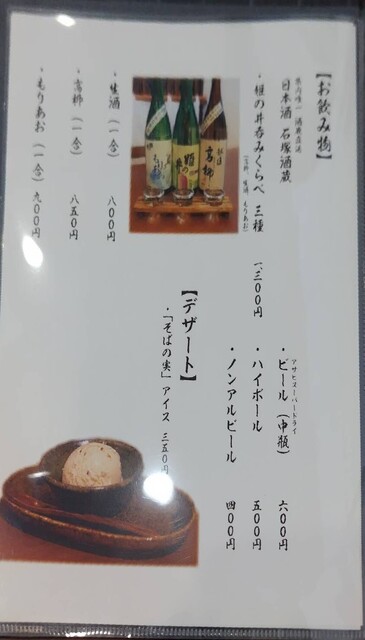 【お飲み物】
県内唯一 酒蔵直送
日本酒 石塚酒蔵
・姫の井呑みくらべ 三種 一、三〇〇円
(高柳、生酒、もりあお)
・生酒(一合) 八〇〇円
・高柳(一合) 八五〇円
・もりあお(一合) 九〇〇円
アサヒスーパードライ
・ビール(中瓶) 六〇〇円
・ハイボール 五〇〇円
・ノンアルビール 四〇〇円
【デザート】
・「そばの実」アイス 三五〇円
高柳
姫の井